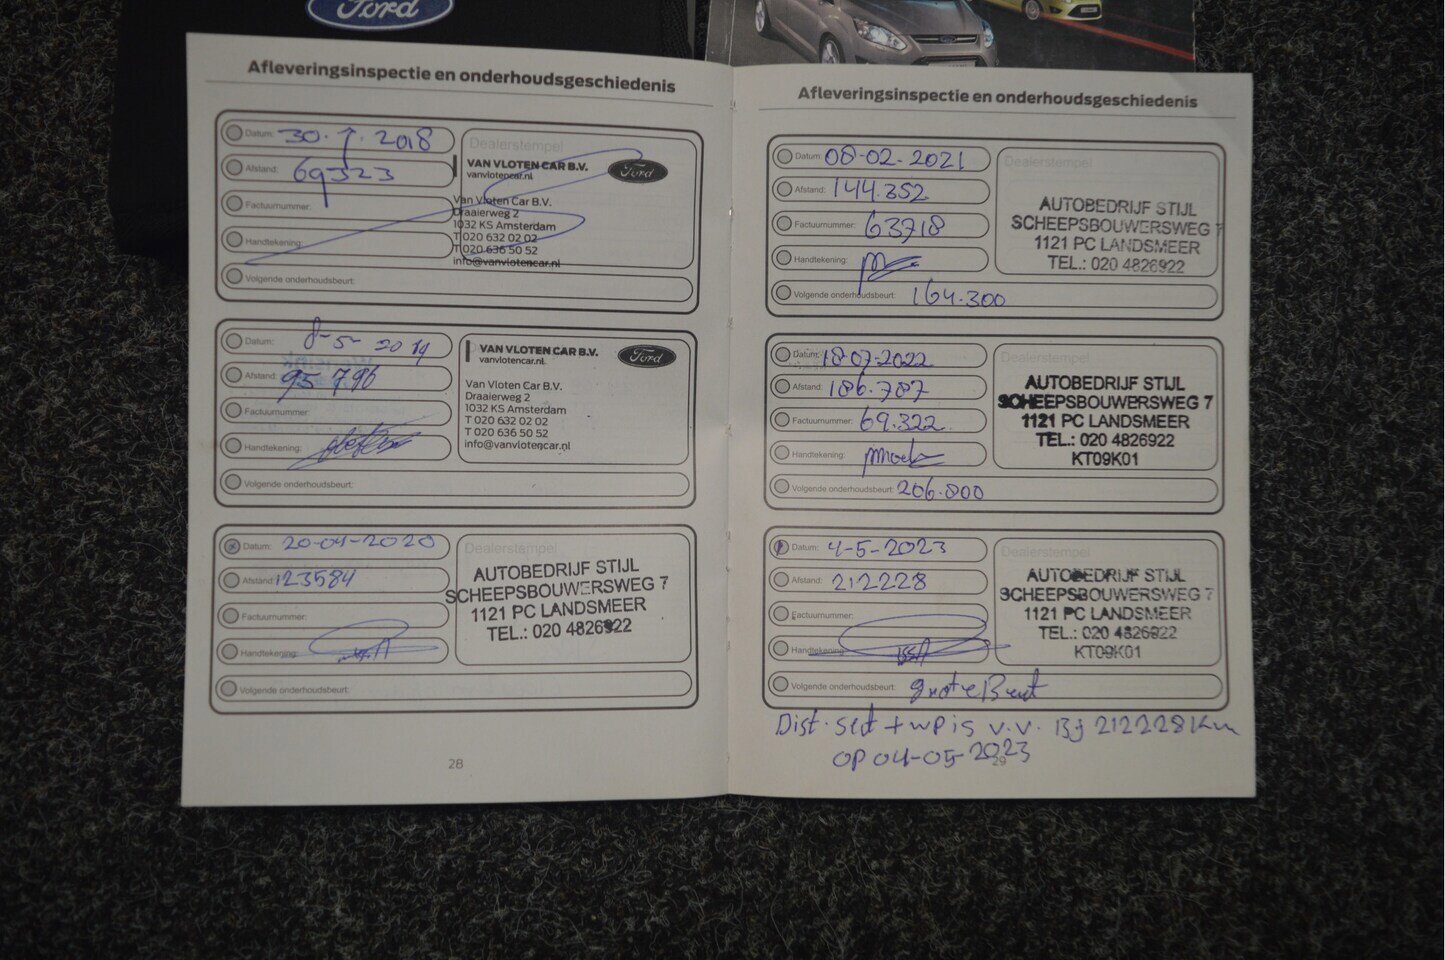 Ford
Afleveringsinspectie en onderhoudsgeschiedenis
Datum: 30-7-2018
Afstand: 69323
Factuurnummer:
Handtekening:
Volgende onderhoudsbeurt:
Dealerstempel
VAN VLOTEN CAR B.V.
vanvlotencar.nl
Ford
Van Vloten Car B.V.
Draaierweg 2
1032 KS Amsterdam
T 020 632 02 02
T 020 636 50 52
info@vanvlotencar.nl
Datum: 8-5-2019
Afstand: 95796
Factuurnummer:
Handtekening:
Volgende onderhoudsbeurt:
VAN VLOTEN CAR B.V.
vanvlotencar.nl
Ford
Van Vloten Car B.V.
Draaierweg 2
1032 KS Amsterdam
T 020 632 02 02
T 020 636 50 52
info@vanvlotencar.nl
Datum: 20-04-2020
Afstand: 123584
Factuurnummer:
Handtekening:
Volgende onderhoudsbeurt:
Dealerstempel
AUTOBEDRIJF STIJL
SCHEEPSBOUWERSWEG 7
1121 PC LANDSMEER
TEL.: 020 4826922
28
Afleveringsinspectie en onderhoudsgeschiedenis
Datum: 08-02-2021
Afstand: 144.352
Factuurnummer: 63718
Handtekening:
Volgende onderhoudsbeurt: 164.300
Dealerstempel
AUTOBEDRIJF STIJL
SCHEEPSBOUWERSWEG 7
1121 PC LANDSMEER
TEL.: 020 4826922
Datum: 18-07-2022
Afstand: 186.787
Factuurnummer: 69.322
Handtekening:
Volgende onderhoudsbeurt: 206.800
Dealerstempel
AUTOBEDRIJF STIJL
SCHEEPSBOUWERSWEG 7
1121 PC LANDSMEER
TEL.: 020 4826922
KT09K01
Datum: 4-5-2023
Afstand: 212228
Factuurnummer:
Handtekening:
Volgende onderhoudsbeurt: grote Beurt
Dealerstempel
AUTOBEDRIJF STIJL
SCHEEPSBOUWERSWEG 7
1121 PC LANDSMEER
TEL.: 020 4826922
KT09K01
Dist. set + wp is v.v. Bij 212228 Km
op 04-05-2023
29